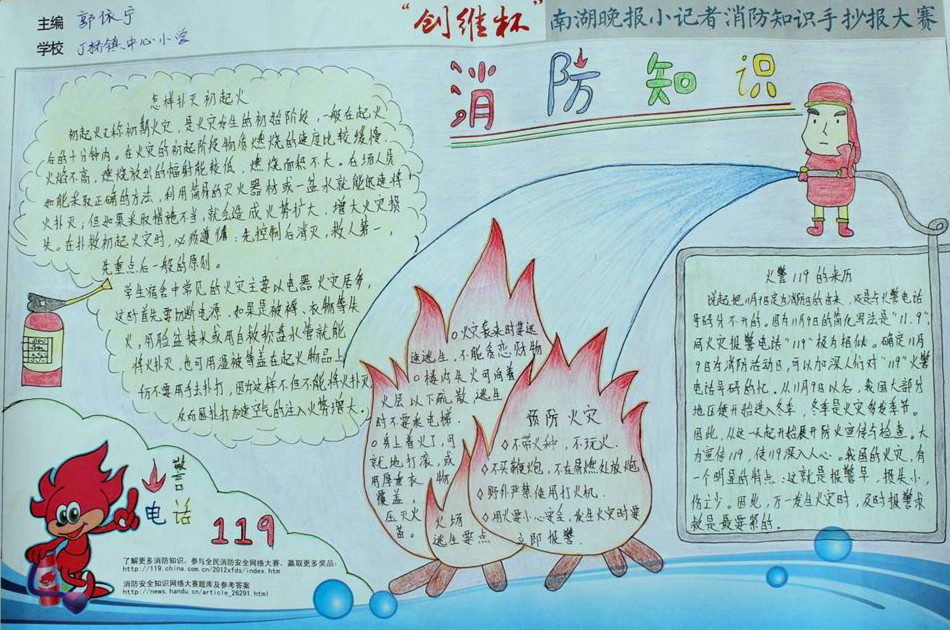 主编 郭依宁
学校 丁桥镇中心小学
“创维杯”南湖晚报小记者消防知识手抄报大赛
消防知识
怎样扑灭初起火
初起火又称初期火灾，是火灾发生的初始阶段，一般在起火
后的十分钟内。在火灾的初起阶段物质燃烧的速度比较缓慢，
火焰不高，燃烧放出的辐射能较低，燃烧面积不大。在场人员
如能采取正确的方法，利用简易的灭火器材或一盆水就能迅速将
火扑灭，但如果采取措施不当，就会造成火势扩大，增大火灾损
失。在扑救初起火灾时，必须遵循：先控制后消灭，救人第一，
先重点后一般的原则。
学生宿舍中常见的火灾主要以电器火灾居多，
这时首先要切断电源，如果是被褥、衣物等失
火，用脸盆接水或用自救软盘水管就能
将火扑灭，也可用湿被等盖在起火物品上，
切不要用手扑打，因为这样不但不能将火扑灭，
反而因扑打加速空气的注入火势增大。
火警
电话 119
了解更多消防知识，参与全民消防安全网络大赛，赢取更多奖品：
http://119.china.com.cn/2012xfds/index.htm
消防安全知识网络大赛题库及参考答案
http://news.handu.cn/article_26291.html
火灾袭来时要迅
速逃生，不能贪恋财物
楼内失火可向着
火层以下疏散逃生
时不要乘电梯
身上着火了，可
就地打滚，或
用厚重衣物
覆盖，
压灭火
苗。
火场
逃生要点
预防火灾
不带火种，不玩火。
不买鞭炮，不在易燃处放炮
野外严禁使用打火机.
用火要小心安全，发生火灾时要
立即报警.
火警119的来历
说起把11月9日定为消防日的由来，这是与火警电话
号码分不开的。因为11月9日的简化写法是“11.9”，
同火灾报警电话“119”极为相似。确定11月
9日为消防活动日，可以加深人们对“119”火警
电话号码的忆。从11月9日以后，我国大部分
地区便开始进入冬季，冬季是火灾多发季节。
因此，从这一天起开始展开防火宣传与检查。大
力宣传119，使119深入人心。我国的火灾，有
一个明显的特点：这就是报警早，损失小，
伤亡少。因此，万一发生火灾时，及时报警求
救是最要紧的.